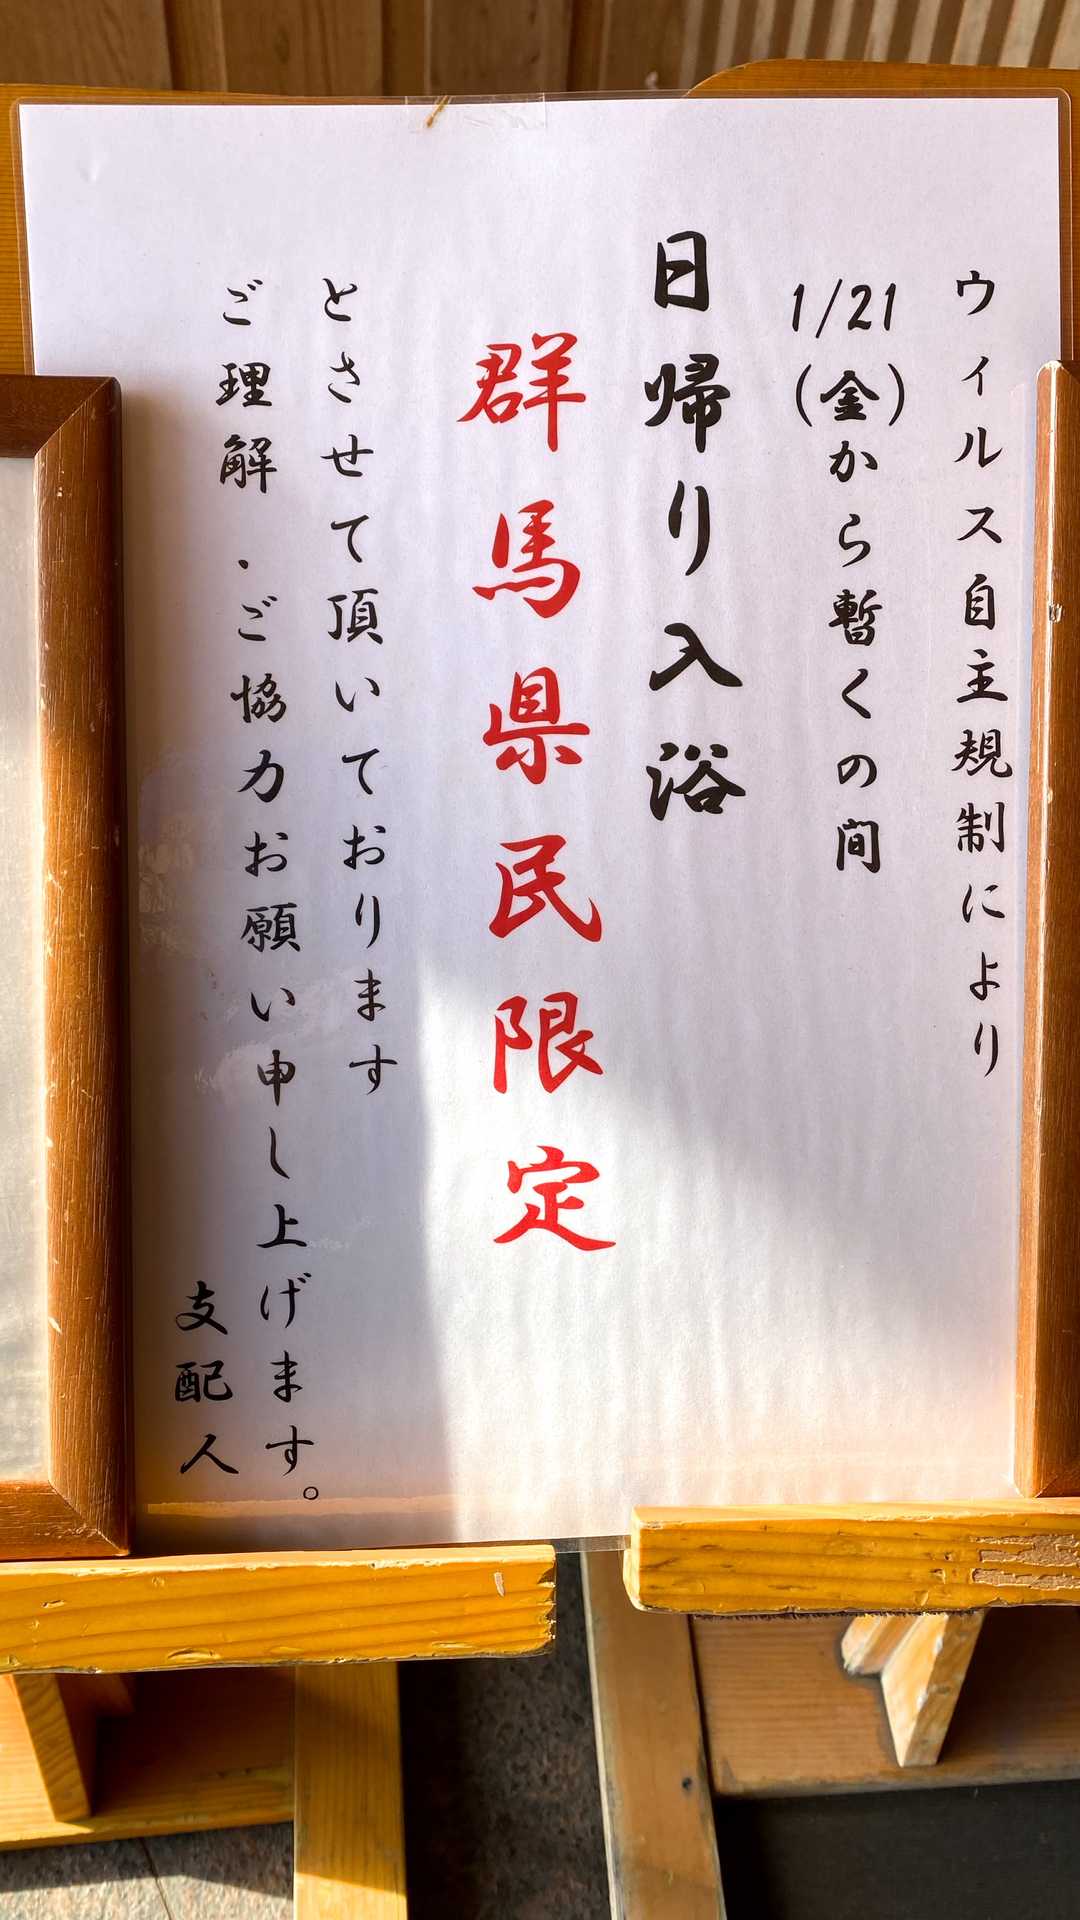 ウィルス自主規制により
1/21(金)から暫くの間
日帰り入浴
群馬県民限定
とさせて頂いております
ご理解・ご協力お願い申し上げます。
支配人